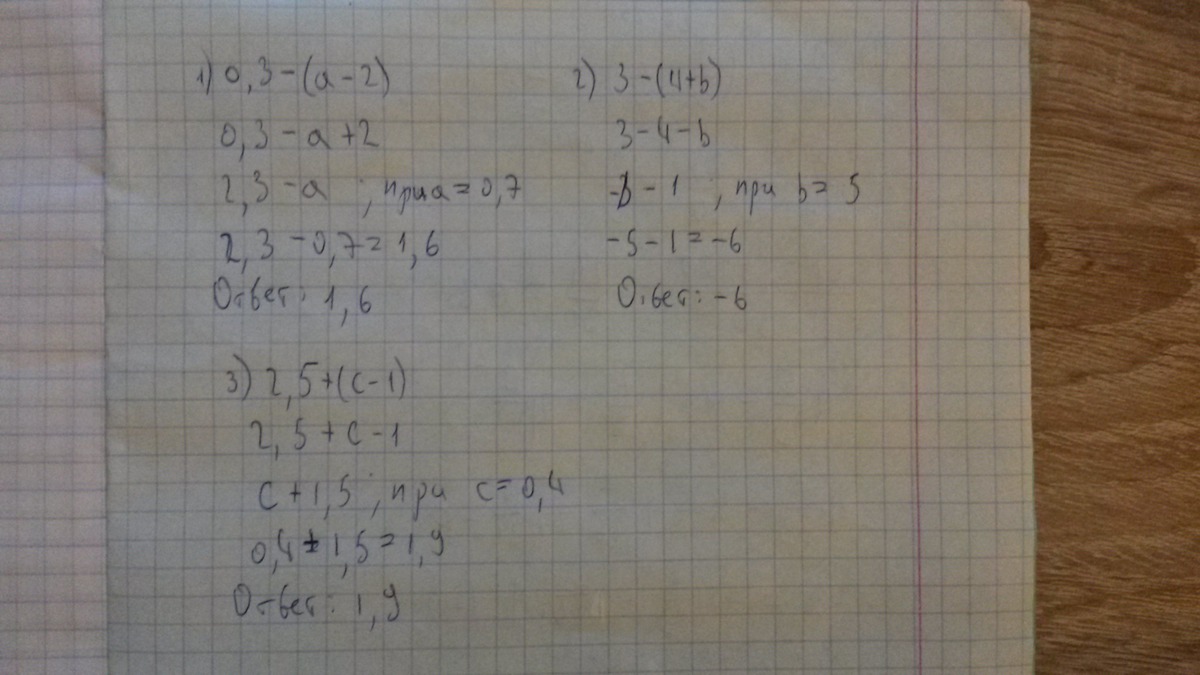 1) 0,3-(a-2)
0,3-a+2
2,3-a ; при a=0,7
2,3-0,7=1,6
Ответ: 1,6
2) 3-(4+b)
3-4-b
-b-1 ; при b=5
-5-1=-6
Ответ: -6
3) 2,5+(c-1)
2,5+c-1
c+1,5 ; при c=0,4
0,4+1,5=1,9
Ответ: 1,9